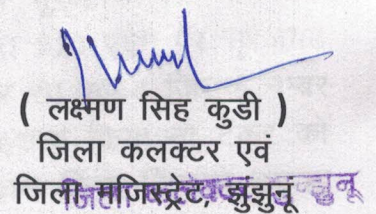 ( लक्ष्मण सिह कुडी )
जिला कलक्टर एवं
जिला मजिस्ट्रेट, झुंझुनूं